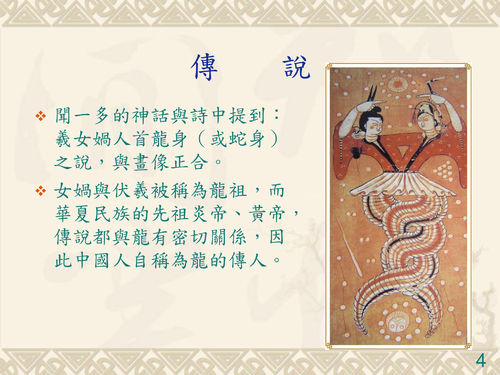 傳 說
聞一多的神話與詩中提到：
羲女媧人首龍身（或蛇身）
之說，與畫像正合。
女媧與伏羲被稱為龍祖，而
華夏民族的先祖炎帝、黃帝，
傳說都與龍有密切關係，因
此中國人自稱為龍的傳人。
4